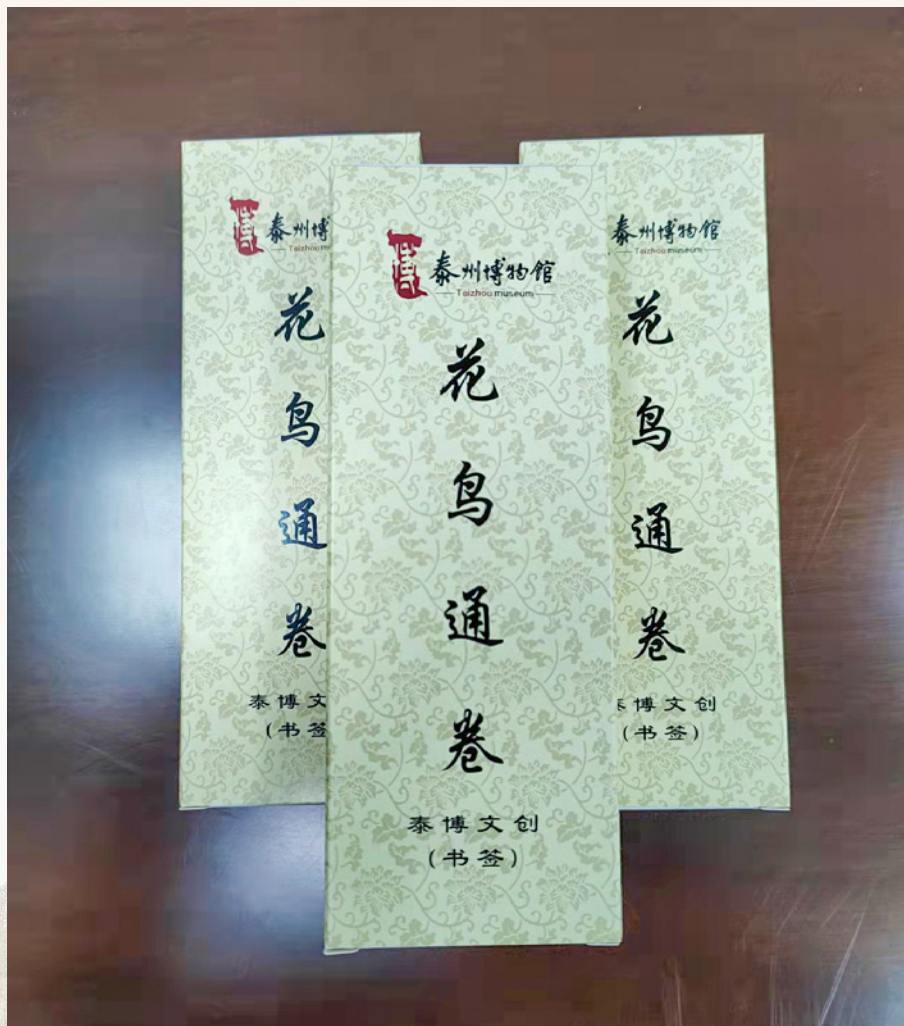 博
泰州博
Taizhou m
花
鸟
通
卷
泰博文
(书签
博
泰州博物馆
Taizhou museum
花
鸟
通
卷
泰博文创
(书签)
泰州博物馆
Taizhou museum
花
鸟
通
卷
博文创
(书签)